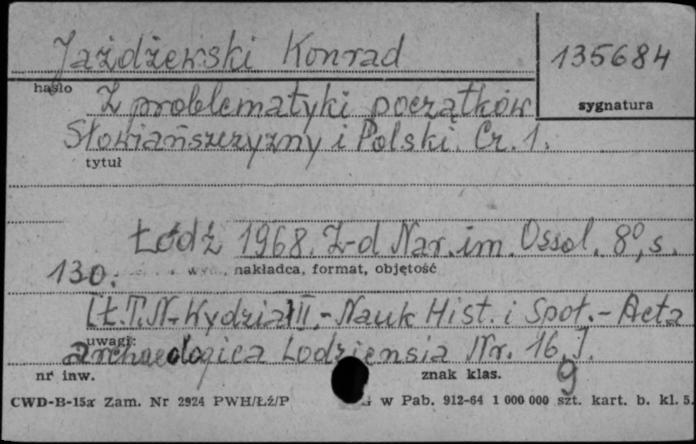 Jażdżewski Konrad
135684
hasło
sygnatura
Z problematyki początków
Słowiańszczyzny i Polski. Cz. 1.
tytuł
Łódź 1968. Z-d Nar. im. Ossol. 8°, s.
130.
nakładca, format, objętość
[Ł.T.N.-Wydział II.-Nauk Hist. i Społ.-Acta
uwagi:
archaeologica Lodziensia Nr. 16].
nr inw.
znak klas.
9
CWD-B-15a Zam. Nr 2924 PWH/Łź/P
w Pab. 912-64 1 000 000 szt. kart. b. kl. 5.